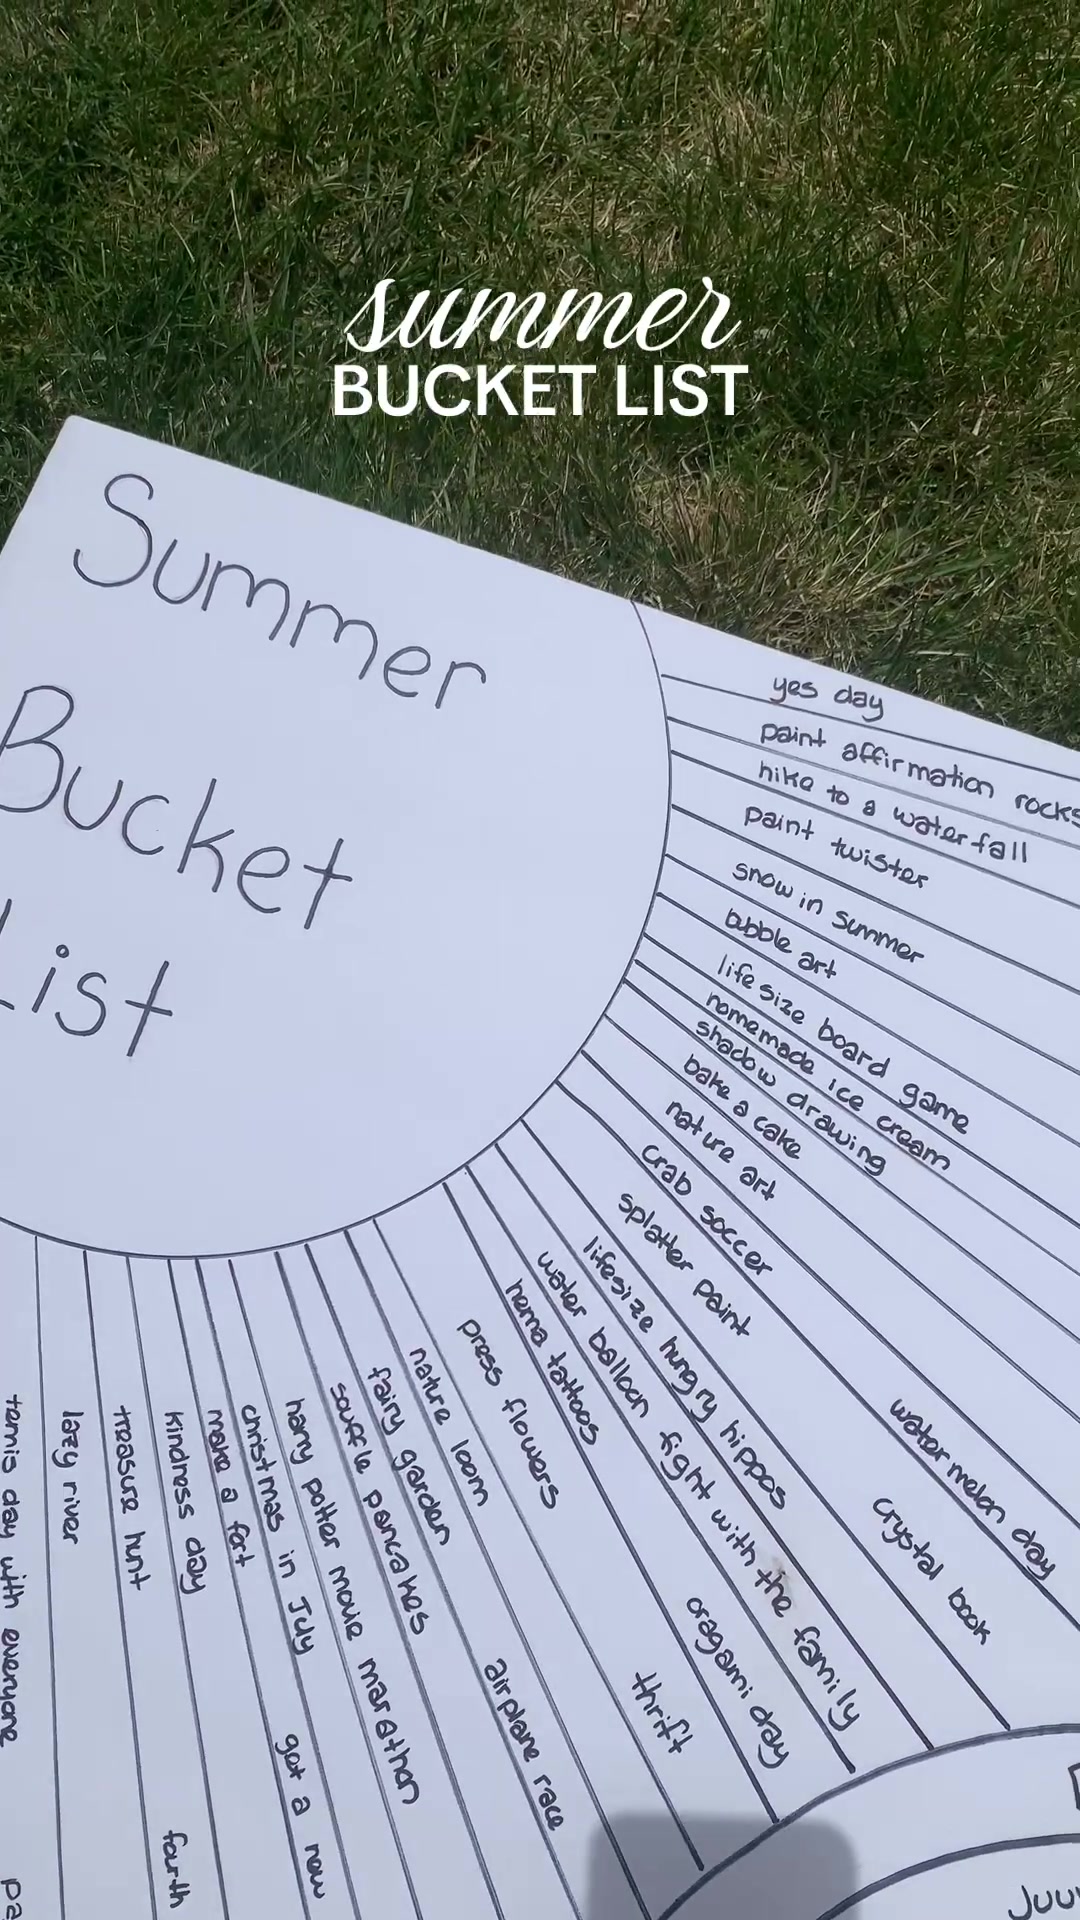 summer
BUCKET LIST
Summer
Bucket
List
yes day
paint affirmation rocks
hike to a waterfall
paint twister
snow in summer
bubble art
life size board game
homemade ice cream
shadow drawing
bake a cake
nature art
crab soccer
splatter paint
watermelon day
crystal book
lifesize hungry hippos
water balloon fight with the family
hena tattoos
oragami day
press flowers
thrift
nature loom
fairy garden
airplane race
souffle pancakes
harry potter movie marathon
christmas in July
make a fort
got a new
kindness day
treasure hunt
fourth
lazy river
tennis day with everyone